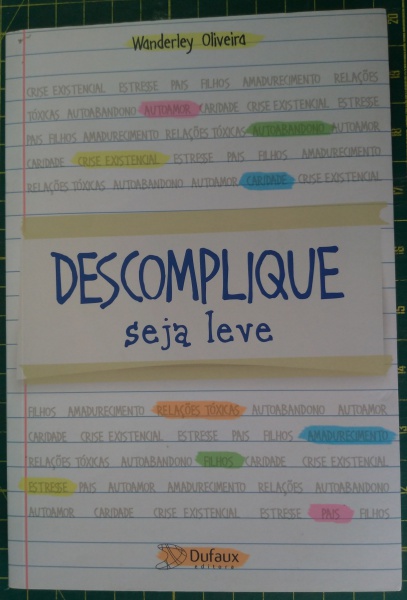 Wanderley Oliveira
CRISE EXISTENCIAL ESTRESSE PAIS FILHOS AMADURECIMENTO RELAÇÕES
TÓXICAS AUTOABANDONO AUTOAMOR CARIDADE CRISE EXISTENCIAL ESTRESSE
PAIS FILHOS AMADURECIMENTO RELAÇÕES TÓXICAS AUTOABANDONO AUTOAMOR
CARIDADE CRISE EXISTENCIAL ESTRESSE PAIS FILHOS AMADURECIMENTO
RELAÇÕES TÓXICAS AUTOABANDONO AUTOAMOR CARIDADE CRISE EXISTENCIAL
DESCOMPLIQUE
seja leve
FILHOS AMADURECIMENTO RELAÇÕES TÓXICAS AUTOABANDONO AUTOAMOR
CARIDADE CRISE EXISTENCIAL ESTRESSE PAIS FILHOS AMADURECIMENTO
RELAÇÕES TÓXICAS AUTOABANDONO FILHOS CARIDADE CRISE EXISTENCIAL
ESTRESSE PAIS AUTOAMOR AMADURECIMENTO RELAÇÕES AUTOABANDONO
AUTOAMOR CARIDADE CRISE EXISTENCIAL ESTRESSE PAIS FILHOS
Dufaux
editora